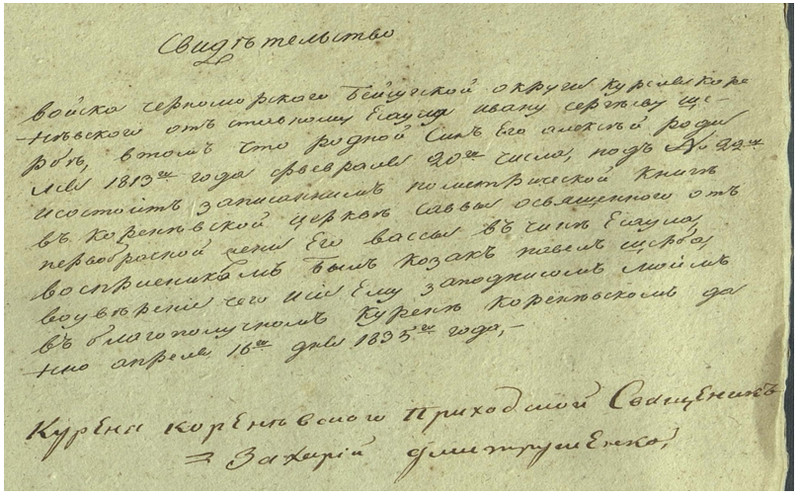 Свидѣтельство
войска черноморского Бейугской округи куреня коре
нѣвского отъставному Есаулу ивану сергѣеву ще
рбѣ, втомъ что родной Синъ Его алексѣй роди
лся 1813го года февраля 20го числа, подъ № 22м
исостоитъ записаннымъ пометрической книгѣ
въ коренѣвской церквѣ саввы освященного отъ
первобрасной жены Его вассы въ чинѣ Есаула,
восприемникомъ былъ козакъ павелъ щерба,
воувѣрение чего исие Ему заподписомъ моимъ
въ благополучномъ Куренѣ коренѣвскомъ да
нно апреля 16го дня 1835го года,-
Курена коренѣвского приходской Священикъ
= Захарій дмитрушенко,